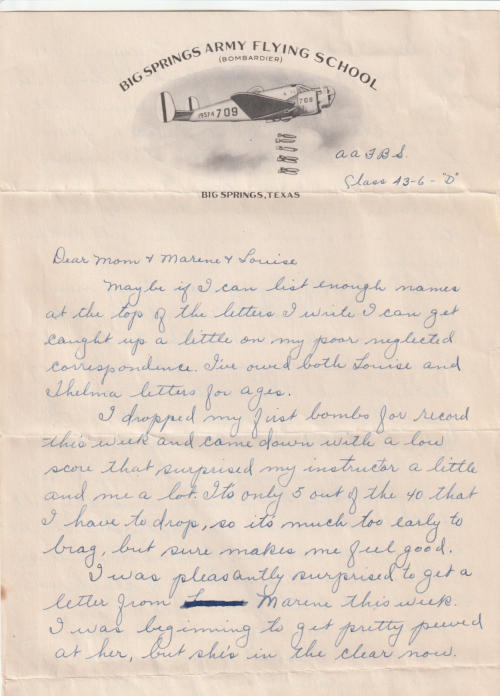 BIG SPRINGS ARMY FLYING SCHOOL
(BOMBARDIER)
195TA 709
709
BIG SPRINGS, TEXAS
AAFBS.
Class 43-6-"D"
Dear Mom & Marene & Louise
Maybe if I can list enough names
at the top of the letters I write I can get
caught up a little on my poor neglected
correspondence. I've owed both Louise and
Thelma letters for ages.
I dropped my first bombs for record
this week and came down with a low
score that surprised my instructor a little
and me a lot. It's only 5 out of the 40 that
I have to drop, so it's much too early to
brag, but sure makes me feel good.
I was pleasantly surprised to get a
letter from Marene this week.
I was beginning to get pretty peeved
at her, but she's in the clear now.